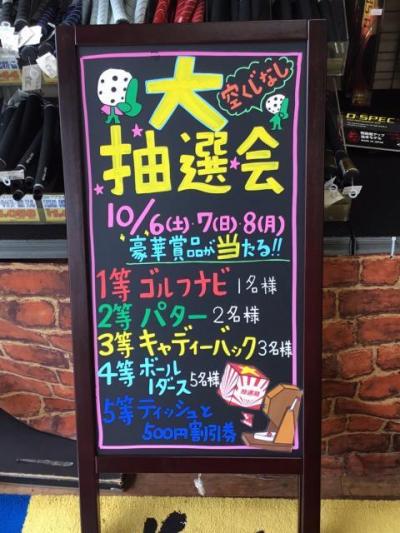 空くじなし
大
抽選会
10/6(土)・7(日)・8(月)
豪華賞品が当たる!!
1等 ゴルフナビ 1名様
2等 パター 2名様
3等 キャディーバック 3名様
4等 ボール
1ダース 5名様
抽選箱
5等 ティッシュと
500円割引券